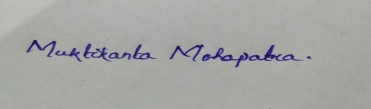 Muktikanta Mohapatra.